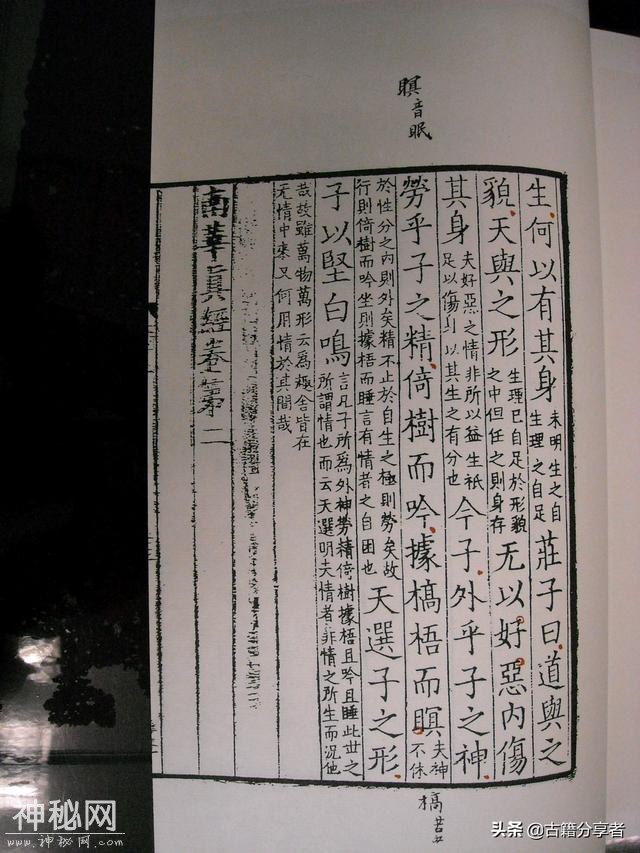 瞑音眠
生何以有其身未明生之自生理之自足莊子曰道與之
貌天與之形生理已自足於形貌之中但任之則身存无以好惡內傷
其身夫好惡之情非所以益生秖足以傷身以其生之有分也今子外乎子之神
勞乎子之精倚樹而吟據槁梧而瞑夫神不休
於性分之內則外矣精不止於自生之極則勞矣故行則倚樹而吟坐則據梧而睡言有情者之自困也天選子之形
子以堅白鳴言凡子所為外神勞精倚樹據梧且吟且睡此世之所謂情也而云天選明夫情者非情之所生而況他
哉故雖萬物萬形云為趣舍皆在无情中來又何用情於其間哉
南華真經卷第二
槁苦
神秘网
www.神秘网.com
头条 @古籍分享者